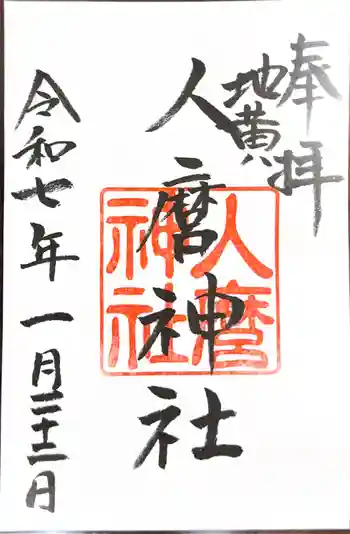 奉拝
地黄
人麿神社
人麿神社
令和七年一月二十二日